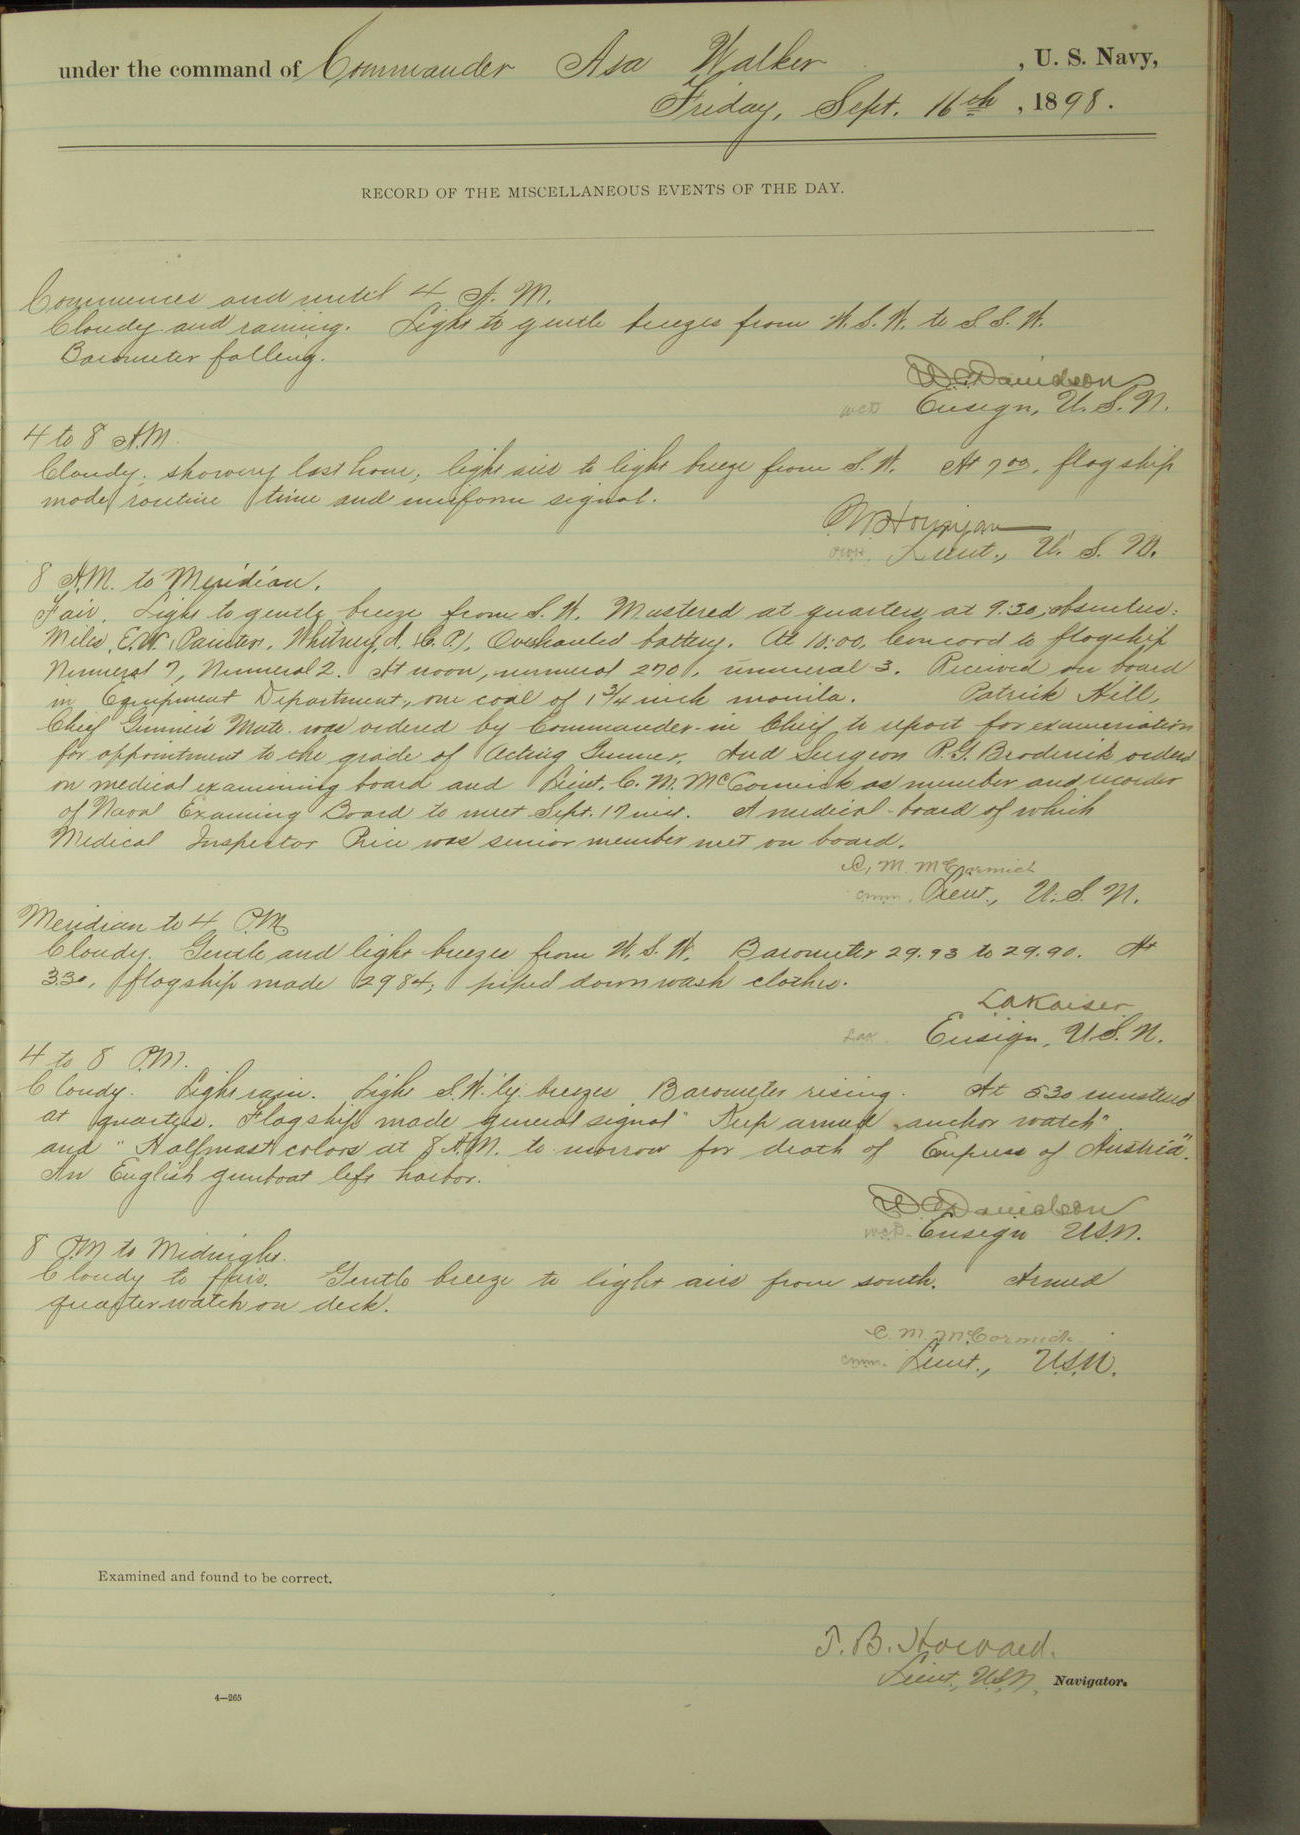 under the command of Commander Asa Walker , U. S. Navy,
Friday, Sept. 16th , 1898.
RECORD OF THE MISCELLANEOUS EVENTS OF THE DAY.
Commences and until 4 A. M.
Cloudy and raining. Light to gentle breezes from W. S. W. to S. S. W.
Barometer falling.
W. C. Davidson
WCD Ensign, U. S. N.
4 to 8 A.M.
Cloudy, showery last hour, light airs to light breeze from S. W. At 7 00, flagship
made routine time and uniform signal.
Lieut., U. S. N.
8 A.M. to Meridian.
Fair. Light to gentle breeze from S. W. Mustered at quarters at 9.30, absentees:
Miles, E.W. Painter, Whitney, A. (C. P.). Overhauled battery. At 10:00, Concord to flagship
Numeral 7, Numeral 2. At noon, numeral 270, numeral 3. Received on board
in Equipment Department, one coal of 1 3/4 inch manila. Patrick Hill,
Chief Gunner's Mate was ordered by Commander-in Chief to report for examination
for appointment to the grade of Acting Gunner. And Surgeon R. G. Broderick orders
on medical examining board and Lieut. C. M. McCormick as member and recorder
of Naval Examing Board to meet Sept. 17 inst. A medical-board of which
Medical Inspector Price was senior member met on board.
C. M. McCormick
cmm. Lieut., U. S. N.
Meridian to 4 P.M.
Cloudy. Gentle and light breezes from W. S. W. Barometer 29.93 to 29.90. At
3.30, flagship made 2984; piped down wash clothes.
L A Kaiser
LAK. Ensign, U. S. N.
4 to 8 P.M.
Cloudy. Light rain. Light S. W.'ly breezes. Barometer rising. At 5.30 mustered
at quarters. Flagship made general signal "Keep armed anchor watch"
and "Halfmast colors at 8 A.M. to morrow for death of Empress of Austria".
An English gunboat left harbor.
W. C. Davidson
WCD. Ensign U.S.N.
8 P.M to Midnight.
Cloudy to fair. Gentle breeze to light airs from south. Armed
quarter watch on deck.
C. M. McCormick
cmm. Lieut., U.S.N.
Examined and found to be correct.
T. B. Howard.
Lieut., U.S.N., Navigator.
4—265